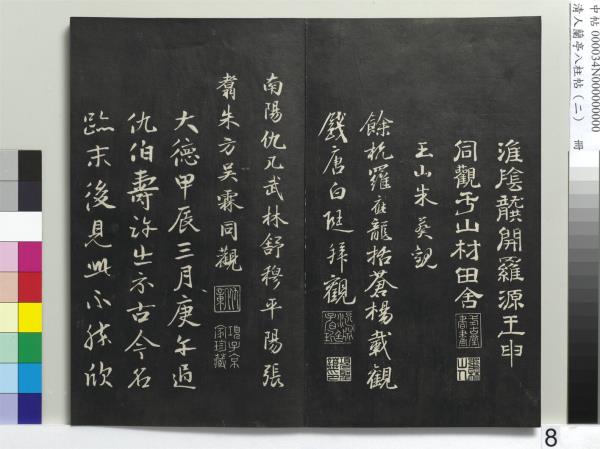 淮陰龔開羅源王申
同觀于山村田舍
王山朱葵觀
餘杭羅志龍括蒼楊載觀
錢唐白珽拜觀
南陽仇几武林舒穆平陽張
翥朱方吳霖同觀
大德甲辰三月庚午過
仇伯壽許出示古今名
跡末後見此不能欣
項子京
家珍藏
中帖 000034N000000000
清人蘭亭八柱帖(二) 冊
8